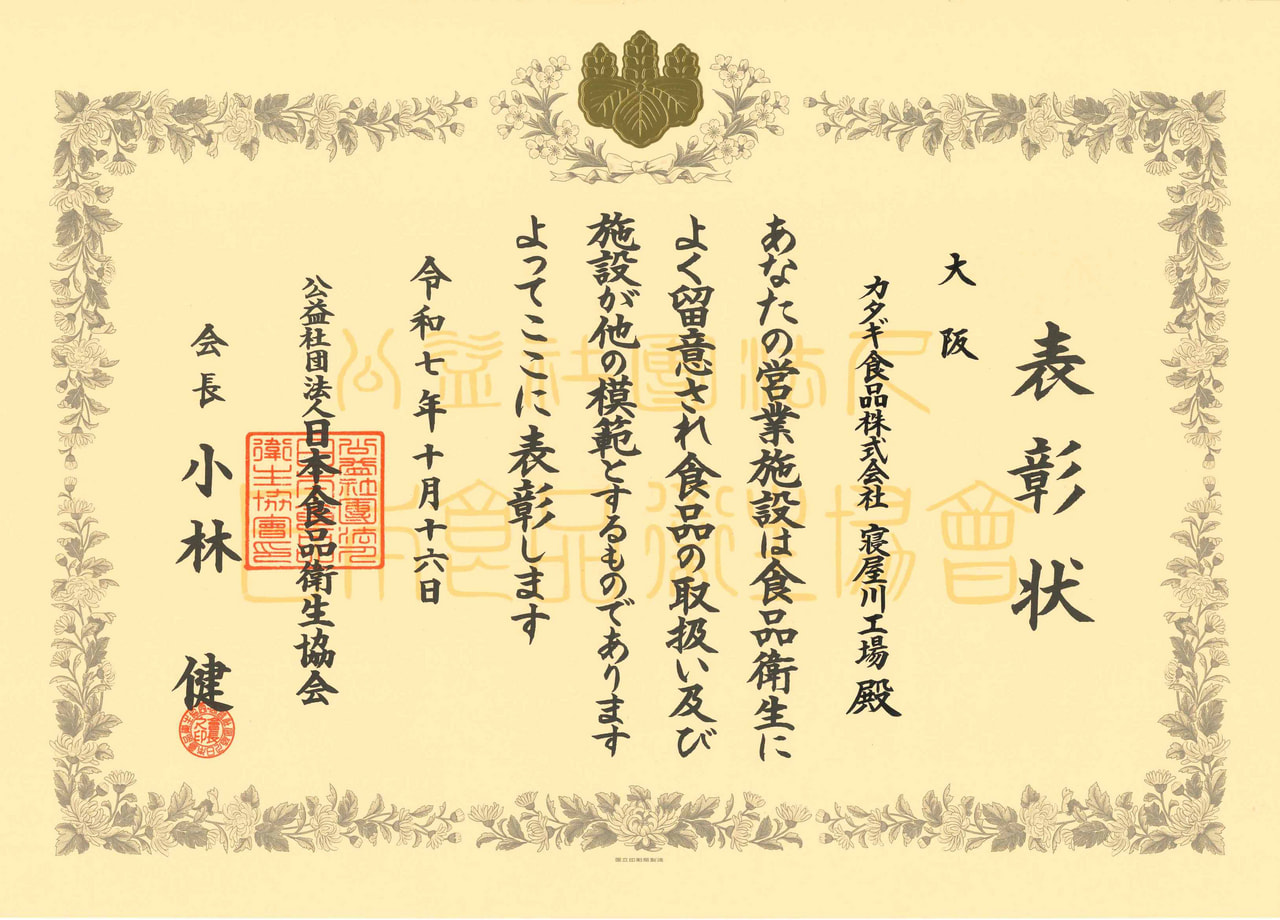 表彰状
大阪
カタギ食品株式会社 寝屋川工場 殿
あなたの営業施設は食品衛生に
よく留意され食品の取扱い及び
施設が他の模範とするものであります
よってここに表彰します
令和七年十月十六日
公益社団法人日本食品衛生協会
会長 小林 健
公益社團法人
日本食品衛生協會